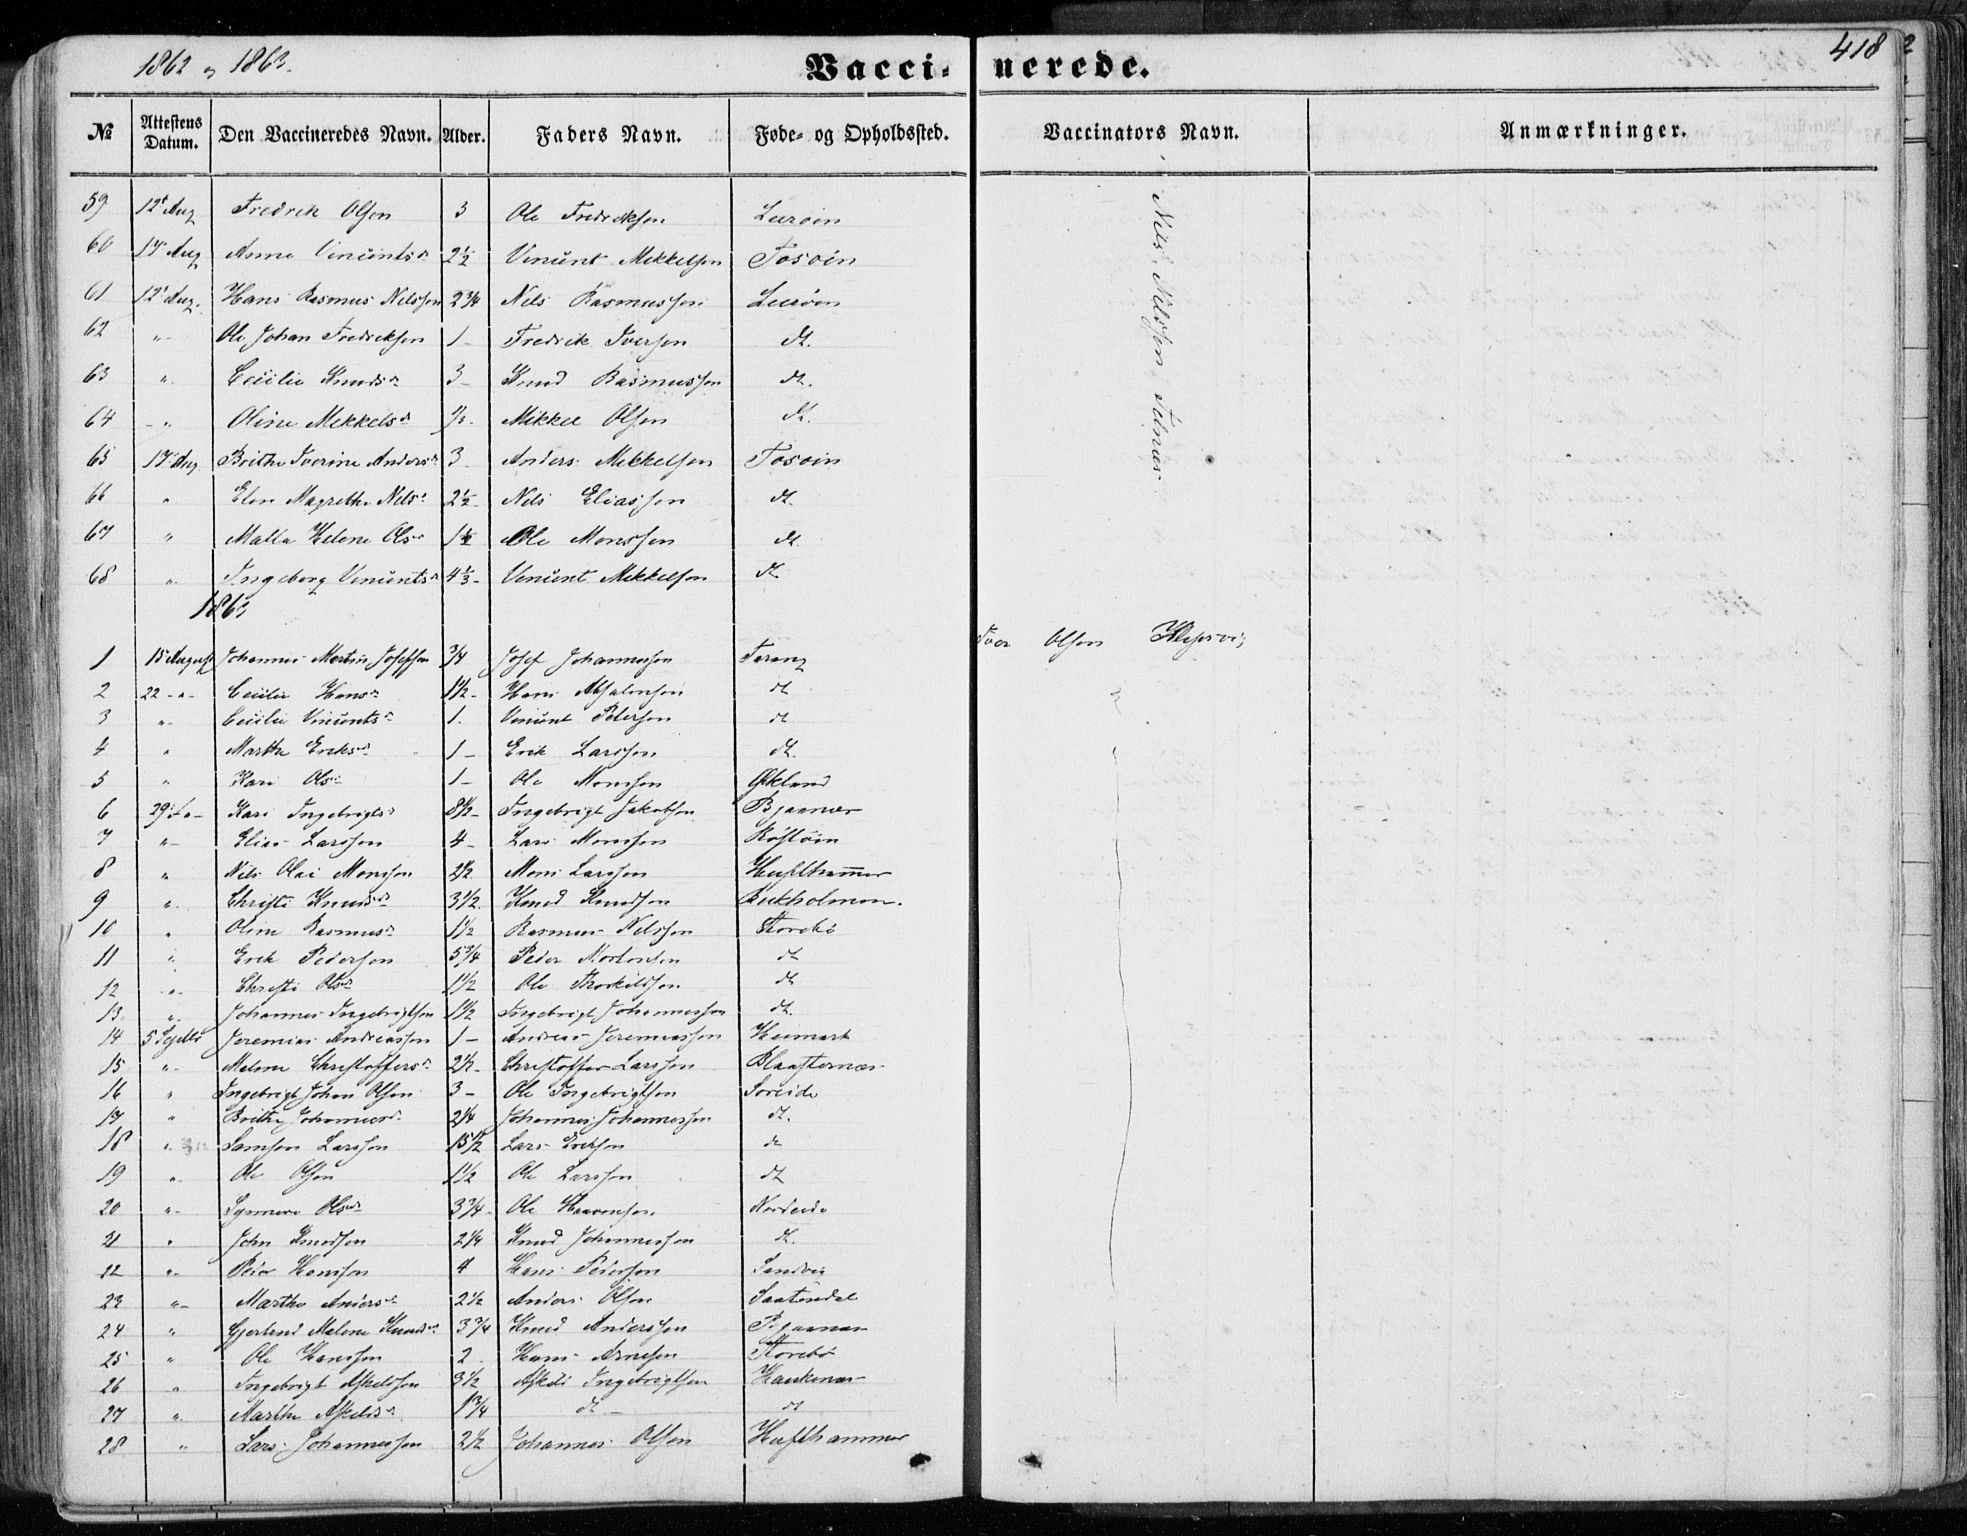 1862 og 1863.
Vaccinerede.
418
№ Attestens Datum. Den Vaccineredes Navn. Alder. Faders Navn. Føde- og Opholdssted. Vaccinators Navn. Anmærkninger.
59 12t Aug Fredrik Olsen 3 Ole Fredriksen Lurøin
60 17 Aug Anne Vincents d 2½ Vincent Mikkelsen Tosøin
61 12t Aug. Hans Rasmus Nilssen 2¾ Nils Rasmussen Lurøen
62 " Ole Johan Fredriksen 1 - Fredrik Iversen dt.
63 " Cecilie Knuds d 3 - Knud Rasmussen dt.
64 - " Oline Mikkels d Mikkel Olsen dt.
65 17 Aug Brithe Iverine Anders d 3 Anders Mikkelsen Tosøin
66 " Elen Magrethe Nils d 2½ - Nils Eliassen dt.
67 " Malla Helene Ols d 1½ Ole Monsson dt.
68 " Ingeborg Vincents d 4⅓ - Vincent Mikkelsen dt
1863
Nils Nilssen
1 15 August Johannes Martin Josefsen ¾ Josef Johannessen Ivar Olsen
2 22 - " - Cecilie Hans d 1½ - Hans dt
3 " - Cecilie Vincents d 1. Vincent Petersen dt
4 " Marthe Eriks d 1 - Erik Larssen dt.
5 " Kari Ols d 1 - Ole Monssen Økland
6 29 Kari Ingebrigts d 8½ - Ingebrigt Jakobsen Bjaanæs
7 " - Elias Larssen 4 - Lars Monssen
8 " Nils Olai Monssen 2½ Mons Larssen Hufthammer
9 " Christi Knuds d 3½ Knud Knudsen
10 " Oline Rasmus d 1½ Rasmus Nilssen Storebø
11 " Erik Pedersen 5¾ Peder Mortensen dt
12 " - Christi Ols d 1½ Ole Thorkildsen dt
13. " Johannes Ingebrigtsen 1½ Ingebrigt Johannessen dt.
14 5 Septbr Jeremias Andreassen 1 - Andreas Jeremiassen
15 " - Malene Christoffers d 2½ - Christoffer Larssen
16 " Ingebrigt Johan Olsen 3 - Ole Ingebrigtsen Søreide
17 " Brithe Johannes d 2¼ Johannes Johannessen dt.
18 " Samson Larssen 15½ Lars Eriksen dt
19 " Ole Olsen 1½ Ole Larssen dt
20 " - Synneve Ols d 3¾ - Ole Haavensen. Nordeide
21 " John Knudsen 2¼ Knud Johannessen dt.
22 " Peder Hanssen 4 Hans Pedersen Sandvig
23 " - Marthe Anders d 2½ Anders Olsen
24 " Gjertrud Malene Knuds d 3¾ Knud Anderssen Bjaanæs
25 " Ole Hanssen 2 Hans Arnesen Storebø
26 " Ingebrigt Askeldsen 3½ Askeld Ingebrigtsen Haukenæs
27 " Marthe Askelds d 1¾ dt - dt
28 " Lars Johannessen 2½ Johannes Olsen Hufthammer